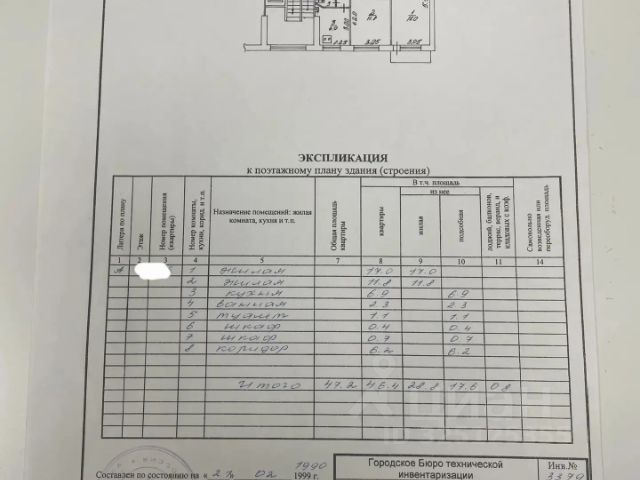 ЭКСПЛИКАЦИЯ
к поэтажному плану здания (строения)
Литера по плану
Этаж
Номер помещения (квартиры)
Номер комнаты, кухни, корид. и т.п.
Назначение помещений: жилая комната, кухня и т.п.
Общая площадь квартиры
В т.ч. площадь
из нее
квартиры
жилая
подсобная
лоджий, балконов, террас, веранд, и кладовых с коэф.
Самовольно возведенная или переоборуд. площадь
1 2 3 4 5 7 8 9 10 11 14
А 1 жилая 17.0 17.0
2 жилая 11.8 11.8
3 кухня 6.9 6.9
4 ванная 2.3 2.3
5 туалет 1.1 1.1
6 шкаф 0.4 0.4
7 шкаф 0.7 0.7
8 коридор 6.2 6.2
Итого 47.2 46.4 28.8 17.6 0.8
Составлен по состоянию на « 21 » 02 1990
1999 г.
Городское Бюро технической инвентаризации
Инв.№
3379